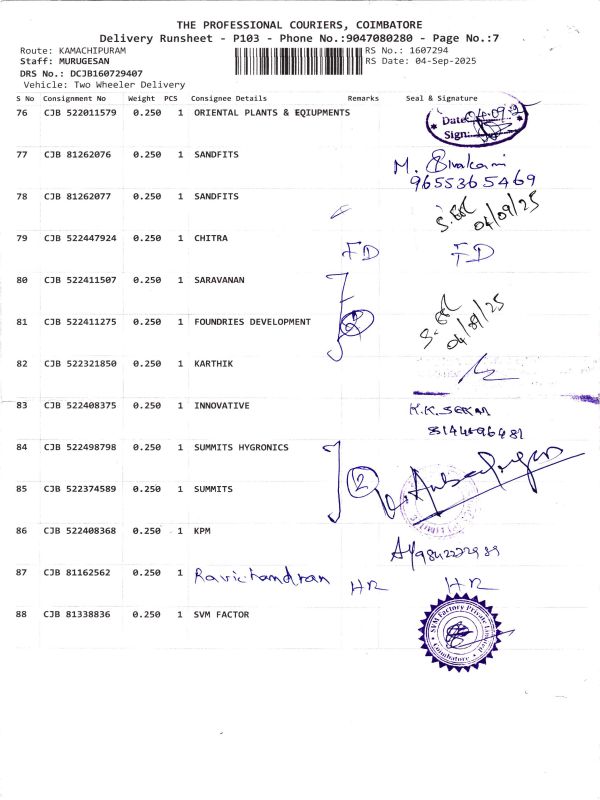 THE PROFESSIONAL COURIERS, COIMBATORE
Delivery Runsheet - P103 - Phone No.:9047080280 - Page No.:7
Route: KAMACHIPURAM RS No.: 1607294
Staff: MURUGESAN RS Date: 04-Sep-2025
DRS No.: DCJB160729407
Vehicle: Two Wheeler Delivery
S No Consignment No Weight PCS Consignee Details Remarks Seal & Signature
76 CJB 522011579 0.250 1 ORIENTAL PLANTS & EQIUPMENTS
Date: 04.09
Sign:
77 CJB 81262076 0.250 1 SANDFITS M. Sivakami
9655365469
78 CJB 81262077 0.250 1 SANDFITS
04/09/25
79 CJB 522447924 0.250 1 CHITRA
FD FD
80 CJB 522411507 0.250 1 SARAVANAN
81 CJB 522411275 0.250 1 FOUNDRIES DEVELOPMENT 2
04/09/25
82 CJB 522321850 0.250 1 KARTHIK
83 CJB 522408375 0.250 1 INNOVATIVE K.K. SEKAR
84 CJB 522498798 0.250 1 SUMMITS HYGRONICS
2
85 CJB 522374589 0.250 1 SUMMITS
86 CJB 522408368 0.250 1 KPM
87 CJB 81162562 0.250 1 Ravichandran HR HR
88 CJB 81338836 0.250 1 SVM FACTOR
SPM Factory Private Limited
Coimbatore